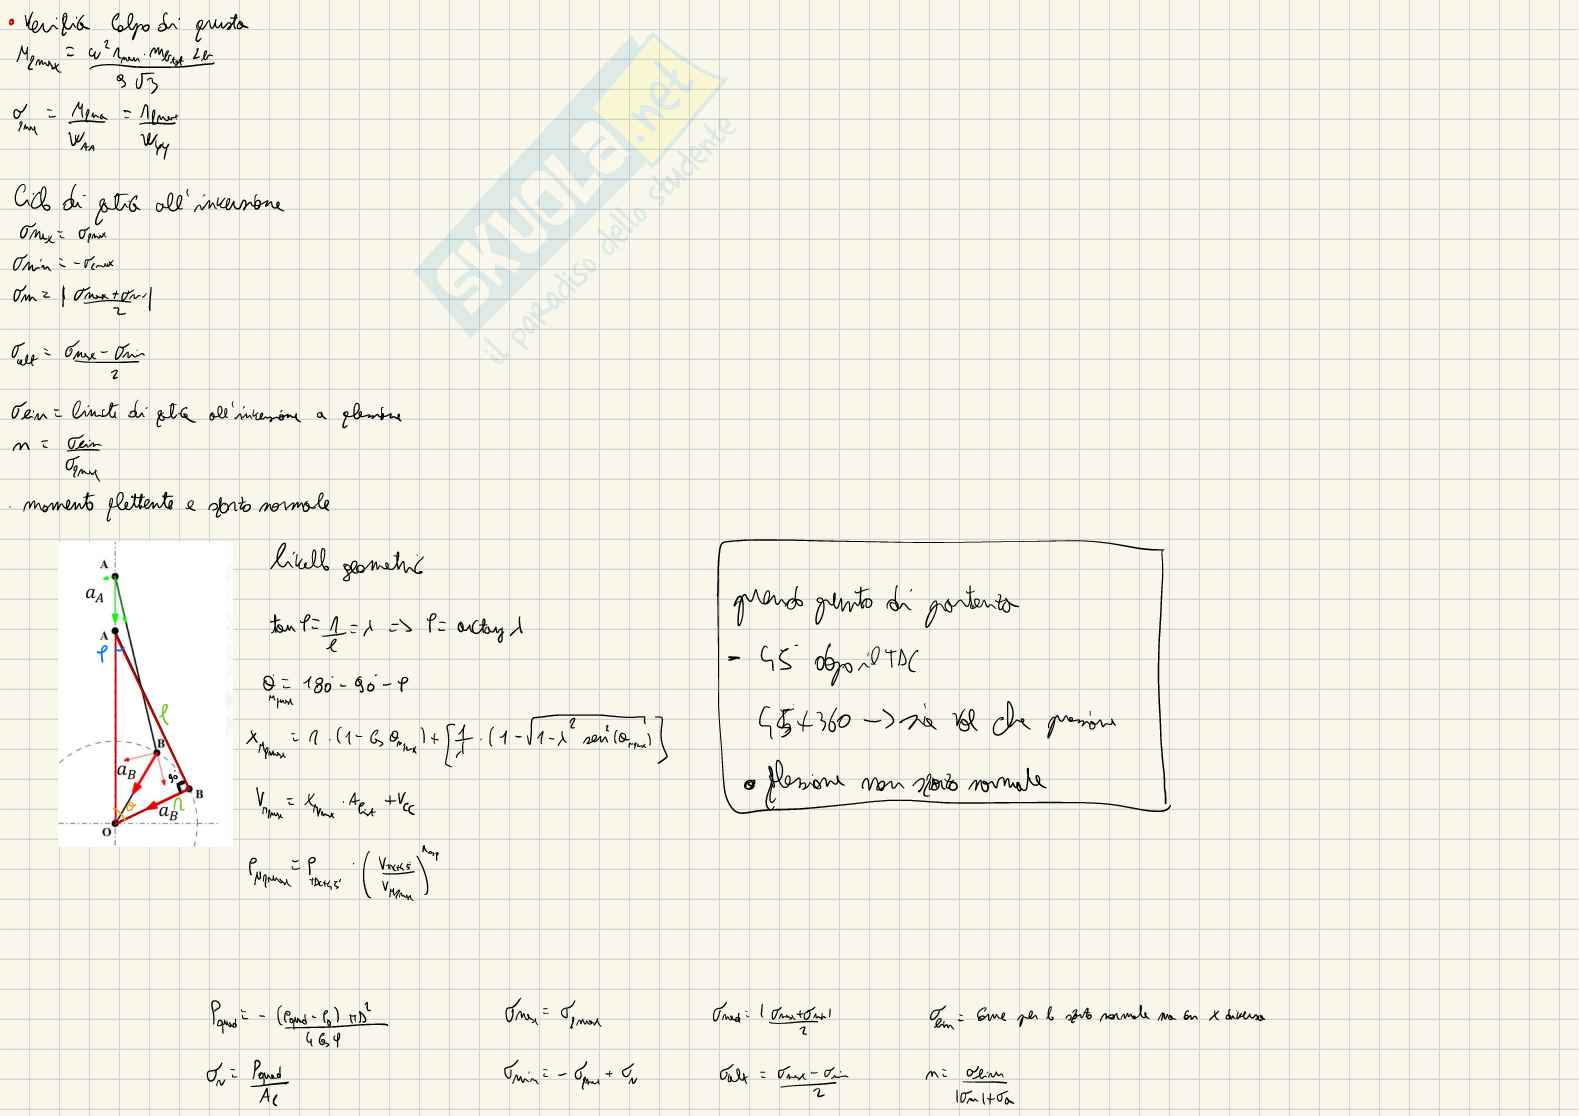 • Verifica Colpo di frusta
M_fmax = ω² r_man · m_btest L_b / 9 √3
σ_fmax = M_fmax / W_AA = M_fmax / W_yy
Ciclo di fatica all'inversione
σmax = σfmax
σmin = -σfmax
σm = | σmax + σmin / 2 |
σalt = σmax - σmin / 2
σlim = limite di fatica all'inversione a flessione
n = σlim / σfmax
· momento flettente e sforzo normale
A
a_A
A
φ
l
B
a_B
90°
B
r
a_B
θ
O
livello geometrico
tan φ = r / l = λ => φ = arctan λ
θ_Mfmax = 180° - 90° - φ
x_Mfmax = r · (1 - cos θ_Mfmax) + [ 1/λ · (1 - √(1 - λ² sen²(θ_Mfmax)) ]
V_Mfmax = x_Mfmax · A_pist + V_cc
P_Mfmax = P_TDC+45° · ( V_TDC+45° / V_Mfmax )^
quando punto di partenza
- 45° dopo il TDC
45 + 360 -> sia vol che pressione
• flessione non sforzo normale
P_quad = - (P_quad - P_0) πD² / 4 cos φ
σ_N = P_quad / A_l
σmax = σfmax
σmin = - σfmax + σN
σmed = | σmax + σmin / 2 |
σalt = σmax - σmin / 2
σlim = come per lo sforzo normale ma con x diverso
n = σlim / |σm| + σa
SKUOLA.net
il paradiso dello studente